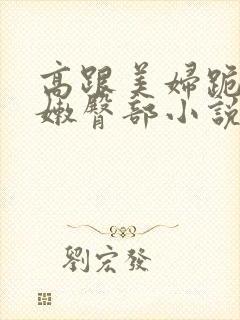 高跟美婦跪
嫩臀部小說
劉宏發